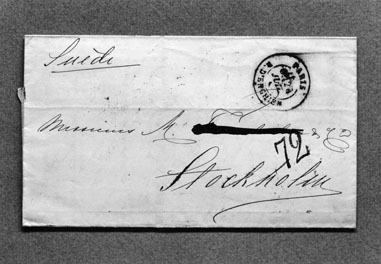 Suède
PARIS
R. D'ENGHIEN
Messieurs M.
& Co
72
Stockholm